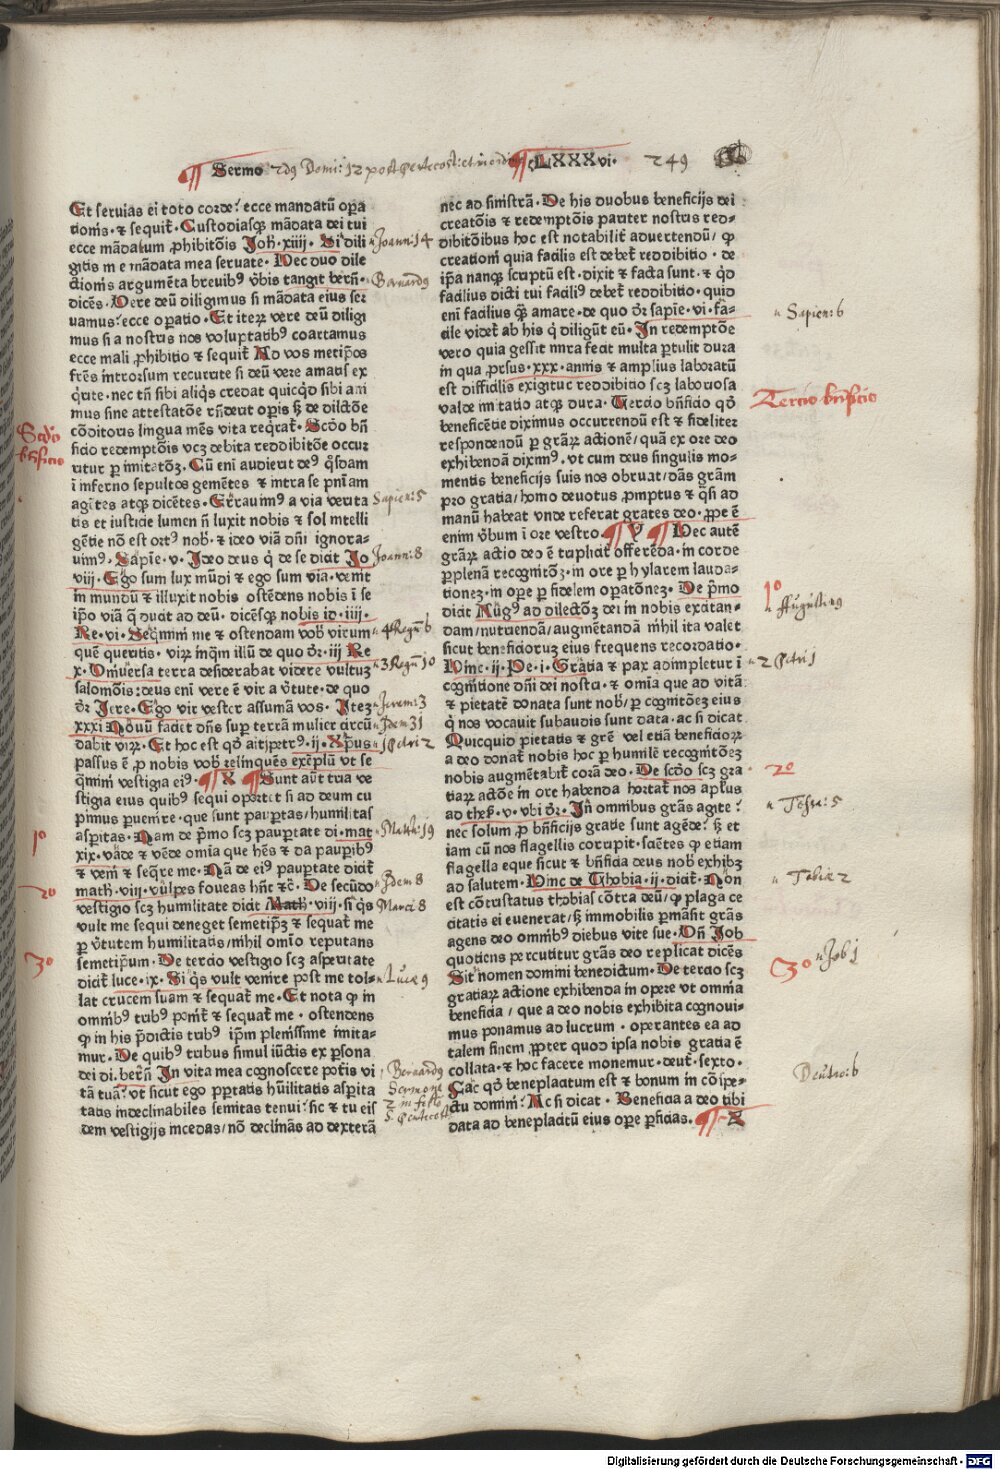 Sermo 2dꝰ Domi: 12 post Pentecost: cLXXXvi. 249
Et seruias ei toto corde: ecce mandatū oꝑa
tiomis. ⁊ sequit̄. Custodiasqꝫ mādata dei tui
ecce mādatum ꝓhibitōis Joh̄. xiiij. Si dili
gitis me mādata mea seruate. Nec duo dile
ctiōis argumēta breuibꝰ ꝟbis tangit berñ.
dicēs. Vere deū diligimus si mādata eius ser
uamus: ecce oꝑatio. Et iterꝝ vere deū diligi
mus si a nostris nos voluptatibꝰ coartamus
ecce mali ꝓhibitio ⁊ sequit̄ Ad vos metip̄os
fr̄es introrsum recurrite si deū vere amatis ex
q̄rite. nec tñ sibi aliq̄s credat quicq̄d sibi ani
mus sine attestatōe rñderit oꝑis sꝫ de dilctōe
cōditoris lingua mēs vita req̄rat̄. Scdo bñ
ficio redemptōis vcꝫ debita reddibitōe occur
ritur ꝑ imitatōꝫ. Cū eni audierit deꝰ q̄sdam
i inferno sepultos gemētes ⁊ intra se pniam
agētes atqꝫ dicētes. Errauimꝰ a via verita
tis et iusticie lumen ñ luxit nobis ⁊ sol intelli
gētie nō est ortꝰ nob̄. ⁊ ideo viā dñi ignora-
uimꝰ. Sapie. v. Ideo deus q̄ de se dicit Jo
viij. Ego sum lux mūdi ⁊ ego sum via. venit
in mundū ⁊ illuxit nobis ostēdens nobis i se
ip̄o viā q̄ ducit ad deū. dicēsqꝫ nobis id. iiij.
Re. vi. Seq̄mini me ⁊ ostendam vob̄ virum
quē queritis. virꝝ inq̄m illū de quo d̄r. iij Re
x. Vniuersa terra desiderabat videre vultuꝫ
salomōis: deus eni vere ē vir a ꝟtute. de quo
d̄r Jere. Ego vir vester assumā vos. Iteꝫ
xxxi Nouū faciet dñs suꝑ terrā mulier circū
dabit virꝝ. Et hoc est qd̄ ait petrꝰ. ij. Xp̄us
passus ē ꝓ nobis vob̄ relinquēs exēplū vt se
q̄mini vestigia eiꝰ. ¶ X ¶ Sunt aūt tria ve
stigia eius quibꝰ sequi oportet si ad deum cu
pimus ꝑuenire. que sunt pauꝑtas/humilitas
asꝑitas. Nam de p̄mo scꝫ pauꝑtate di. mat
xix. vāde ⁊ vēde omia que hēs ⁊ da pauꝑibꝰ
⁊ veni ⁊ seq̄re me. Nā de eiꝰ pauꝑtate dicit̄
math. viij. vulpes foueas hñt ⁊č. De secūdo
vestigio scꝫ humilitate dicit Math. viij. si q̄s
vult me sequi deneget semetip̄ꝫ ⁊ sequat̄ me
ꝑ ꝟtutem humilitatis/nihil omio reputans
semetip̄um. De tercio vestigio scꝫ asꝑitate
dicit̄ luce. ix. Si q̄s vult venire post me tol-
lat crucem suam ⁊ sequat̄ me. Et nota ꝙ in
omnibꝰ tribꝰ poni̅t ⁊ sequat̄ me. ostendens
ꝙ in his p̄dictis tribꝰ ip̄m plenissime imita-
mur. De quibꝰ tribus simul iūctis ex ꝑsona
dei di. berñ In vita mea cognoscere potis vi
tā tuā: vt sicut ego pꝑtatis hūilitatis asꝑita
tatis indeclinabiles semitas tenui: sic ⁊ tu eis
dem vestigijs incedas/nō declinās ad dexterā
nec ad sinistrā. De his duobus beneficijs dei
creatōis ⁊ redemptōis pariter nostris red-
dibitōibus hoc est notabilit̄ aduertendū/ ꝙ
creationi quia facilis est debet̄ reddibitio. de
ip̄a nanqꝫ scriptū est. dixit ⁊ facta sunt. ⁊ qd̄
facilius dicti tui faciliꝰ debet̄ reddibitio. quid
eni facilius q̄ꝫ amare. de quo d̄r sapie. vi. fa-
cile videt̄ ab his q̄ diligūt eū. In redemptōe
vero quia gessit mira fecit multa ꝑtulit dura
in qua ꝓrsus. xxx. annis ⁊ amplius laboratū
est difficilis exigitur reddibitio scꝫ laboriosa
valde imitatio atqꝫ dura. Tercio bñficio qd̄
beneficētie diximus occurrendū est ⁊ fideliter
respondendū ꝑ gr̄aꝝ actionē/ quā ex ore deo
exhibendā diximꝰ. vt cum deus singulis mo-
mentis beneficijs suis nos obruat/dās gr̄am
pro gratia/homo deuotus ꝓmptus ⁊ q̄si ad
manū habeat vnde referat grates deo. ꝓpe ē
enim ꝟbum i ore vestro. ¶ Y ¶ Nec autē
gr̄aꝝ actio deo ē tripliciť offerēda. in corde
ꝑ plenā recognitōꝫ. in ore ꝑ hylarem lauda-
tionez. in oꝑe ꝑ fidelem oꝑatōnez. De p̄mo
dicit Augꝰ ad dilectōꝫ dei in nobis excitan-
dam/nutriendā/augmētandā nihil ita valet
sicut beneficioruꝫ eius frequens recordatio.
Hinc. ij. Pe. i. Gratia ⁊ pax adimpletur i
cognitione dñi dei nostri. ⁊ omia que ad vitā
⁊ pietatē donata sunt nob̄/ ꝑ cognitōeꝫ eius
q̄ nos vocauit subaudis sunt data. ac si dicat
Quicquid pietatis ⁊ gr̄e vel etiā beneficioꝝ
a deo donat̄ nobis hoc ꝑ humilē recognitōeꝫ
nobis augmētabit̄ corā deo. De scdo scꝫ gra
tiaꝝ actōe in ore habenda hortat̄ nos aplus
ad thes̄. v. vbi d̄r. In omnibus gr̄as agite:
nec solum ꝓ bñficijs gratie sunt agēde: sꝫ et
iam cū nos flagellis corripit. sciētes ꝙ etiam
flagella eque sicut ⁊ bñficia deus nob̄ exhibꝫ
ad salutem. Hinc de Thobia. ij. dicit̄. Non
est cōtristatus thobias cōtra deū/ ꝙ plaga ce
citatis ei euenerat/ sꝫ immobilis ꝑmāsit gr̄as
agens deo omnibꝰ diebus vite sue. Vn̄ Job
quotiens percutitur gr̄as deo replicat dicēs
Sit nomen domini benedictum. De tercio scꝫ
gratiaꝝ actione exhibenda in opere vt omnia
beneficia / que a deo nobis exhibita cognoui-
mus ponamus ad lucrum. operantes ea ad
talem finem ꝓpter quod ipsa nobis gratia ē
collata. ⁊ hoc facere monemur. deut̄. sexto.
Fac qd̄ beneplacitum est ⁊ bonum in cōspe-
ctu domini: Ac si dicat. Beneficia a deo tibi
data ad beneplacitū eius oꝑe ꝑficias. ¶ Z
Joann: 14
Bernardꝰ
Scdo
bñficio
Sapien: 5
Joann: 8
4 Regū 6
3 Regū 10
Jerem: 3
Idem 31
1 Petri 2
1º
Matth: 19
2º
Idem 8
Marci 8
3º
Lucæ 9
Bernardꝰ
Sermone
2 in festo
S. Pentecost:
Sapien: 6
Tercio bñficio
1º
Augustinꝰ
2 Petri 1
2º
Tessa: 5
Tobiæ 2
3º
Job 1
Deutro: 6
Digitalisierung gefördert durch die Deutsche Forschungsgemeinschaft - DFG